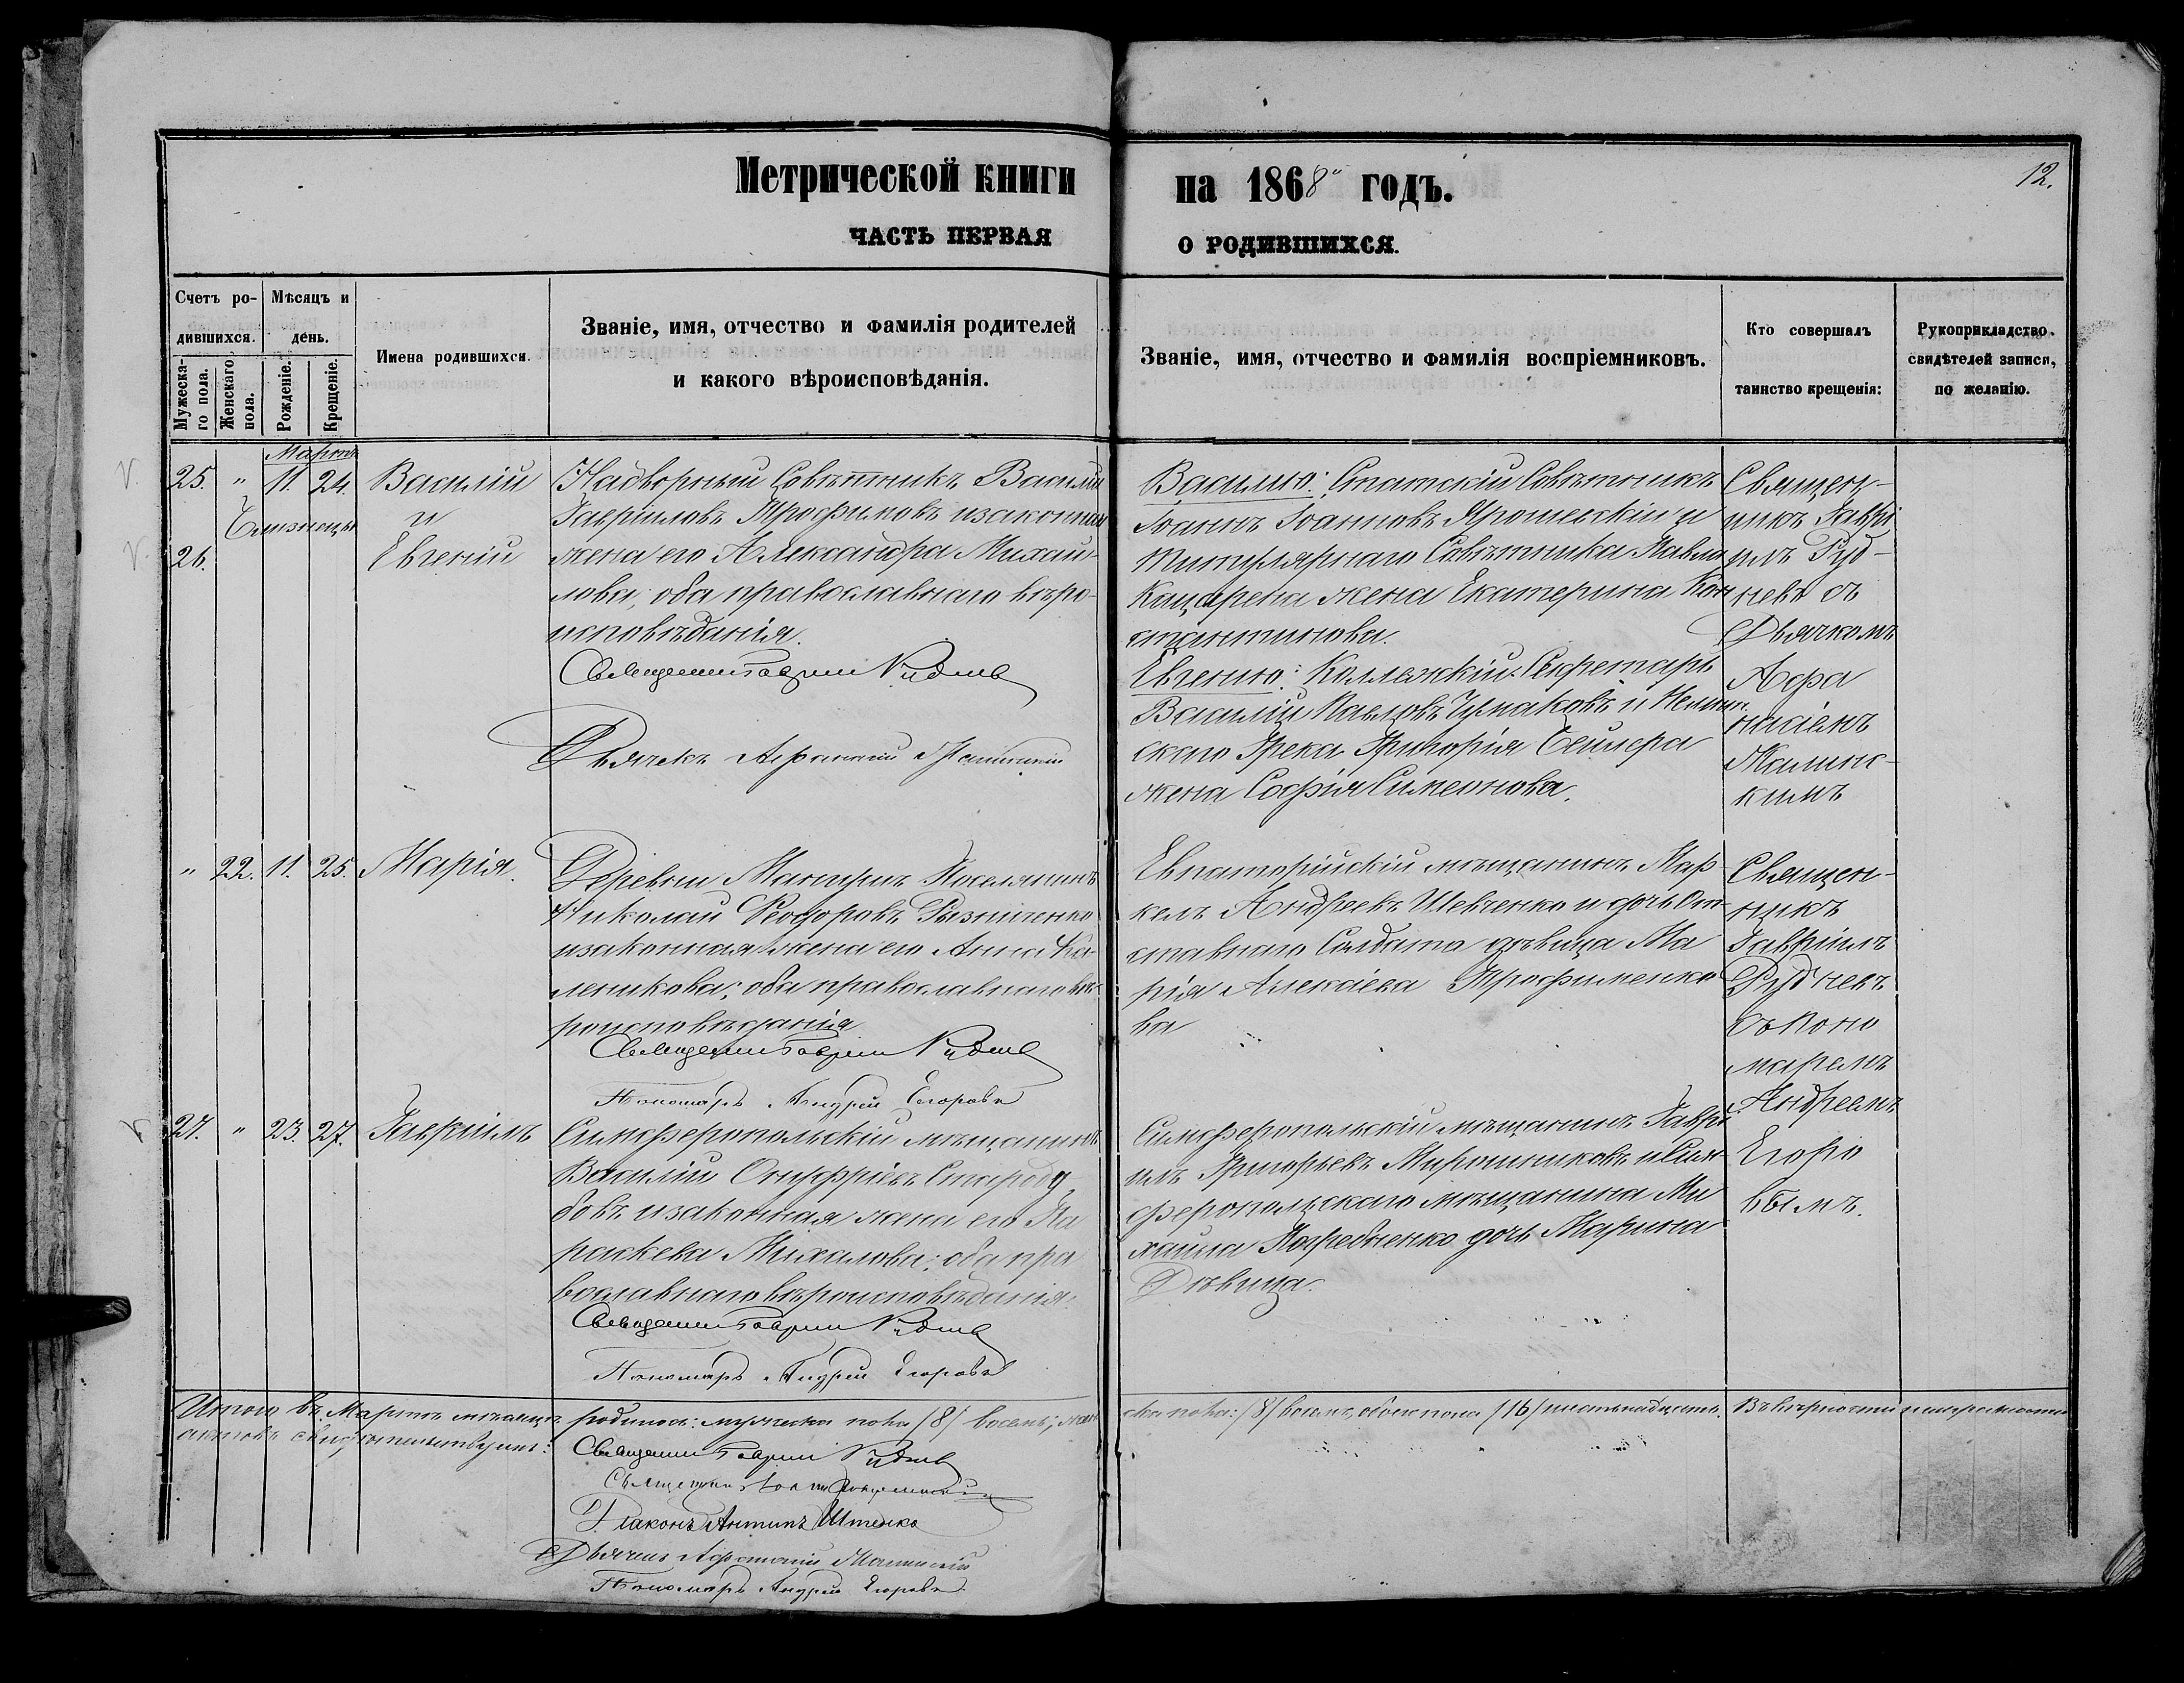 Метрической книги на 1868й годъ.
12.
ЧАСТЬ ПЕРВАЯ О РОДИВШИХСЯ.
Счетъ родившихся.
Мужескаго пола.
Женскаго пола.
Мѣсяцъ и день.
Рожденіе.
Крещеніе.
Имена родившихся.
Званіе, имя, отчество и фамилія родителей
и какого вѣроисповѣданія.
Званіе, имя, отчество и фамилія воспріемниковъ.
Кто совершалъ
таинство крещенія:
Рукоприкладство
свидѣтелей записи,
по желанію.
Мартъ
25. " 11. 24.
Близнецы
26.
Василій
и
Евгеній
Надворный Совѣтникъ Василій
Гавріиловъ Трофимовъ и законная
жена его Александра Михай-
лова, оба православнаго вѣро-
исповѣданія.
Священникъ Гавріилъ Рудневъ
Дьячекъ Афанасий
Василію: Статскій Совѣтникъ
Іоаннъ Іоанновъ Ярошевскій и
Титулярнаго Совѣтника Павла
жена Екатерина Кон
стантинова.
Евгенію: Коллежскій Секретарь
Василій Павловъ и
скаго Грека Григорія
жена Софія Симеонова.
Священ-
никъ Гаврі
илъ Руд-
невъ съ
Дьячкомъ
Афа
насіемъ
" 22. 11. 25. Марія.
Деревни Поселянинъ
Николай Феодоровъ
и законная жена его Анна
оба православнаго вѣ-
роисповѣданія
Священникъ Гавріилъ Рудневъ
Пономарь Андрей Егоровъ
Евпаторійскій мѣщанинъ
Андреевъ Шевченко и дочь От-
ставнаго Солдата дѣвица Ма
рія Алексѣева Трофименко
ва
Священ-
никъ
Гавріилъ
Рудневъ
съ Поно
маремъ
Андреемъ
Егоро
вымъ.
27. " 23. 27. Гавріилъ
Симферопольскій мѣщанинъ
Василій Онуфріевъ Староду
бовъ и законная жена его Па
раскева Михалова; оба пра
вославнаго вѣроисповѣданія.
Священникъ Гавріилъ Рудневъ
Пономарь Андрей Егоровъ
Симферопольскій мѣщанинъ Гаврі
илъ Григорьевъ Мирошниковъ и Сим
феропольскаго мѣщанина Ми
хаила дочь Марина
Дѣвица.
Итого въ Мартѣ мѣсяцѣ родилось: мужеска пола /8/ восемь; жен
ска пола: /8/ восемь, обоего пола /16/ шестьнадцать. Въ вѣрности
актовъ свидѣтельствуемъ:
Священникъ Гавріилъ Рудневъ
Священникъ
Діаконъ Антипъ
Дьячекъ Афанасий
Пономарь Андрей Егоровъ